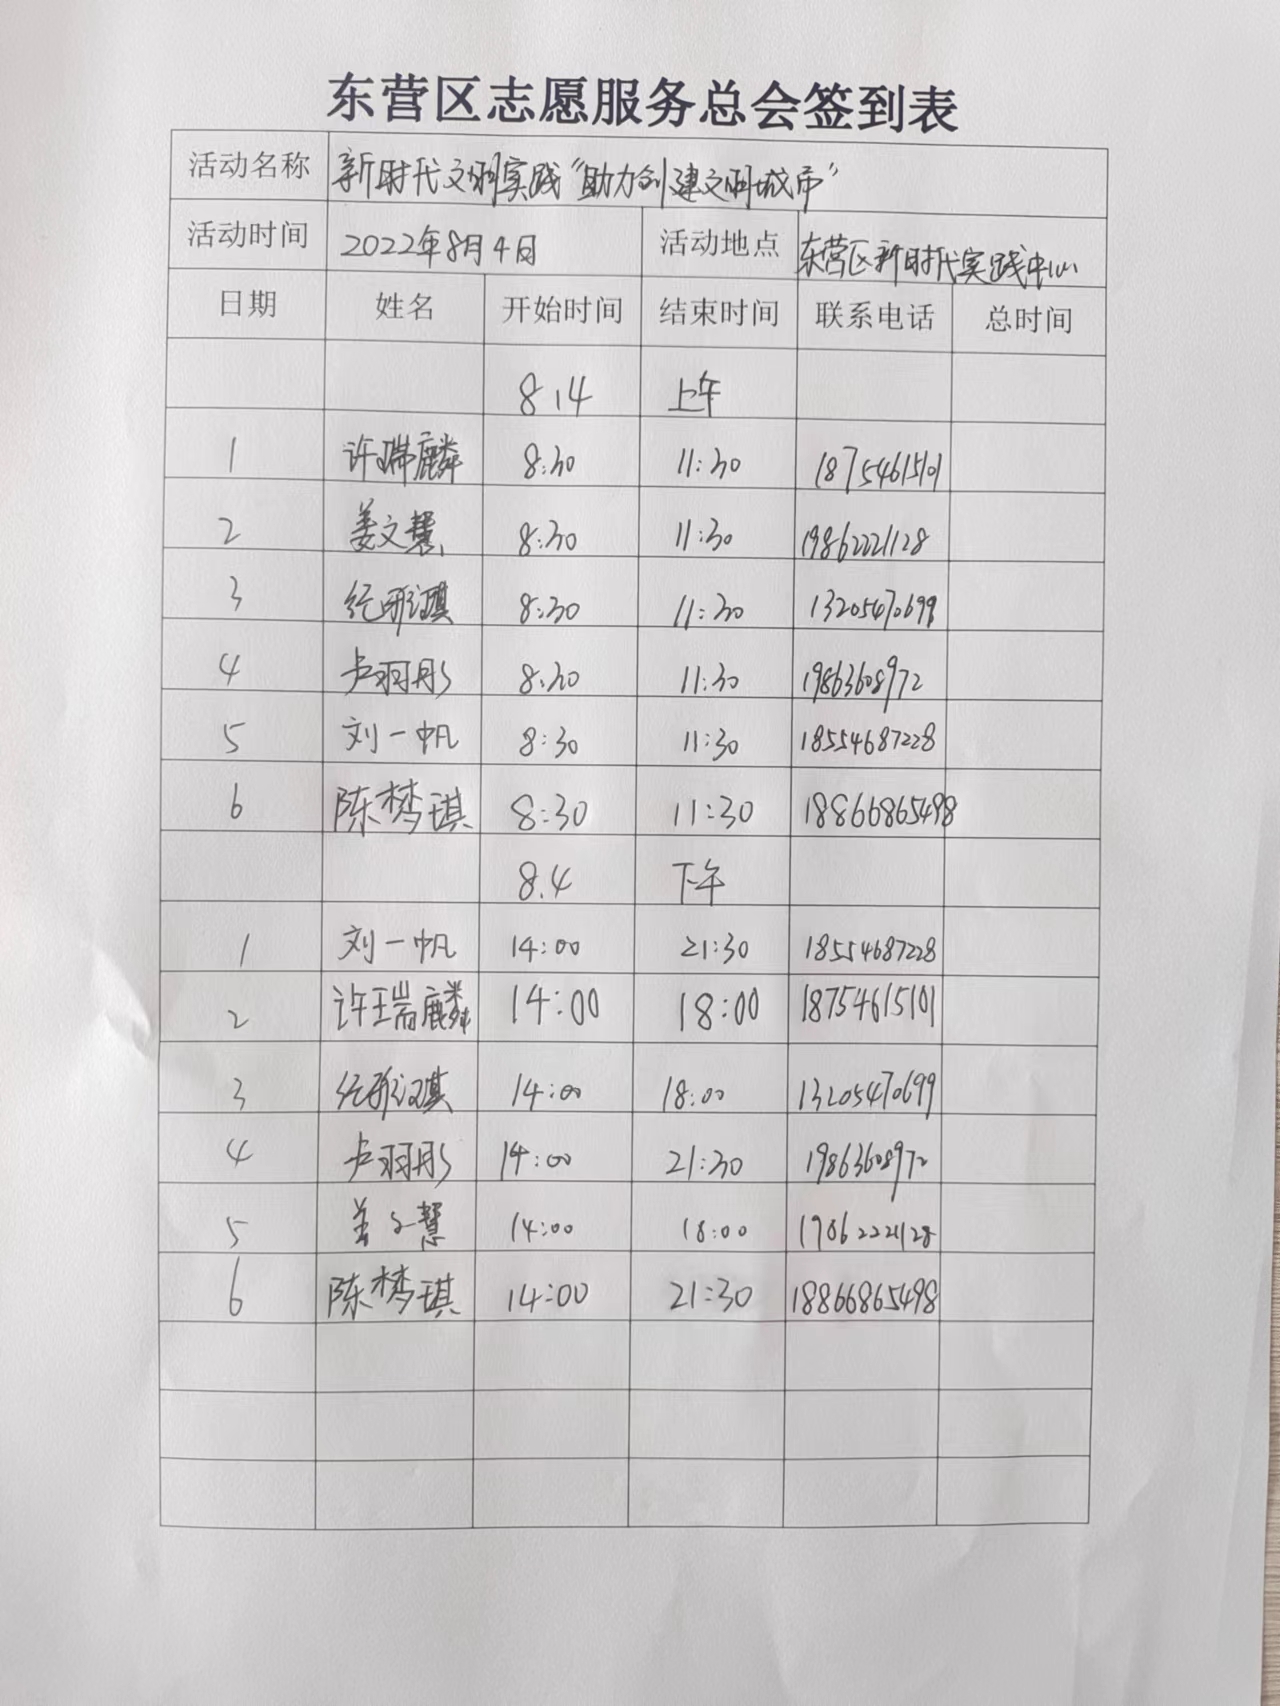 东营区志愿服务总会签到表
活动名称 新时代文明实践“助力创建文明城市”
活动时间 2022年8月4日 活动地点 东营区新时代实践中心
日期 姓名 开始时间 结束时间 联系电话 总时间
8.14 上午
1 许瑞麟 8:30 11:30 18754615101
2 姜文慧 8:30 11:30 19862221128
3 纪彤淇 8:30 11:30 13205470699
4 卢羽彤 8:30 11:30 19863608972
5 刘一帆 8:30 11:30 18554687228
6 陈梦琪 8:30 11:30 18866865498
8.4 下午
1 刘一帆 14:00 21:30 18554687228
2 许瑞麟 14:00 18:00 18754615101
3 14:00 18:00 13205470699
4 卢羽彤 14:00 21:30 19863608972
5 姜文慧 14:00 18:00 19862221128
6 陈梦琪 14:00 21:30 18866865498